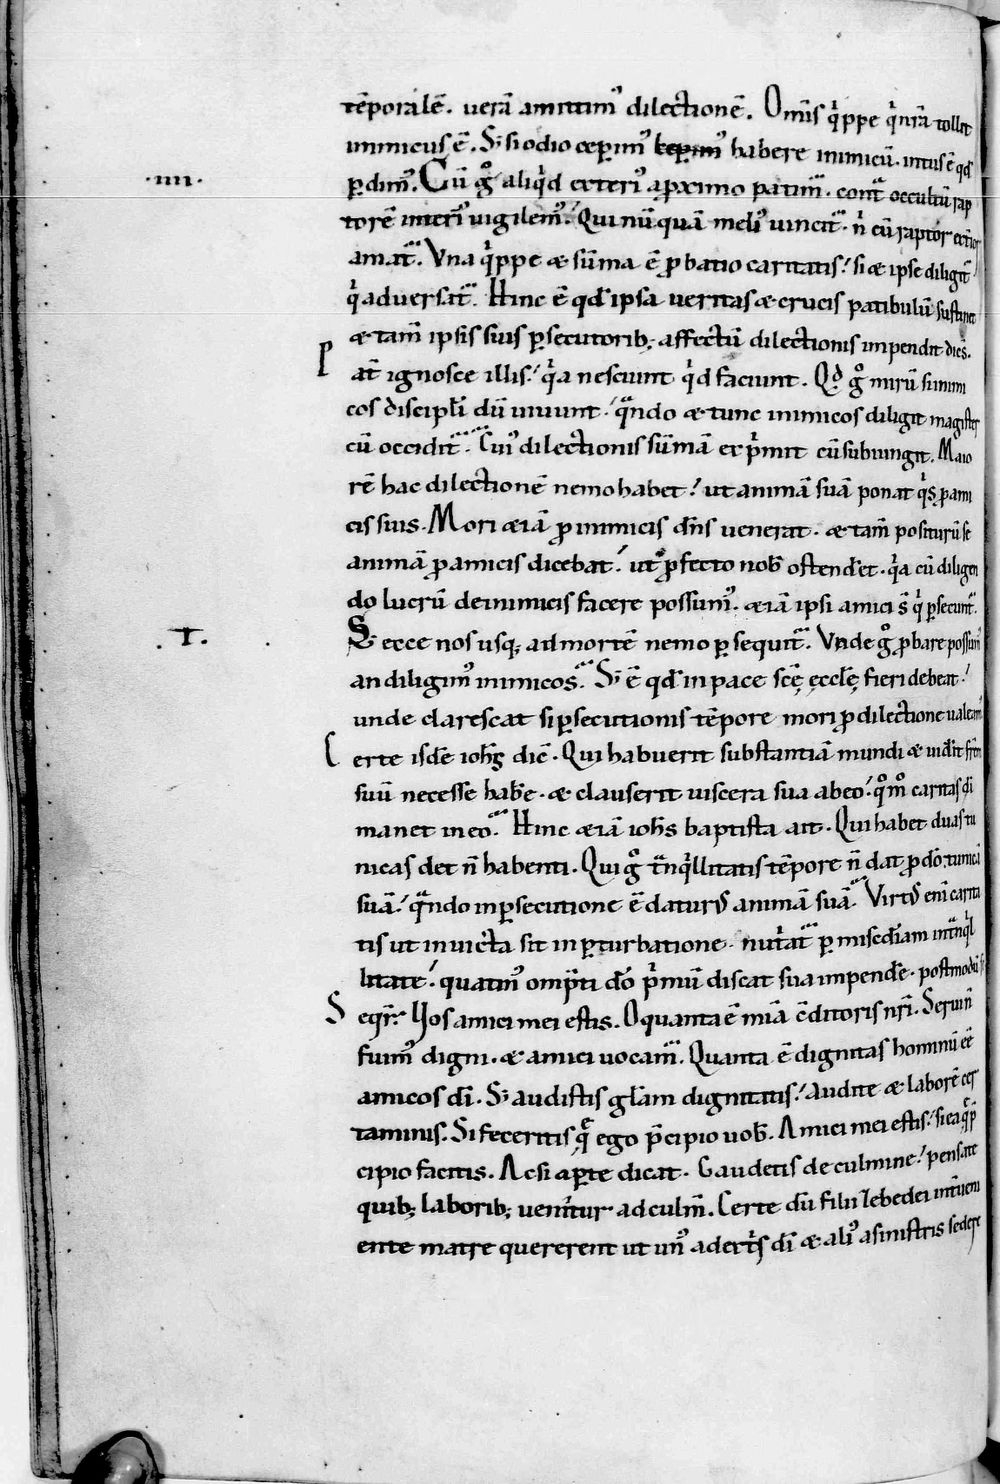 tēporalē. uerā amittim᷒ dilectionē. Om̄is q͛ppe q͛ nr̄a tollit
inimicus ē. S; si odio cep̱im᷒ habere inimicū. intus ē qd̄
p̱dim᷒. Cū gͦ aliq͛d exteri᷒ a ꝓximo patim̃. cont̃ occultū rap
torē interi᷒ uigilem᷒. Qui nū quā meli᷒ uincit̃. n̄ cū raptor exterior
amat̃. Vna q͛ppe æ sūma ē ꝓbatio caritatis! si æ ipse diligit̃
q͛ aduersat̃. Hinc ē qđ ipsa ueritas æ crucis patibulū sustinet
æ tam̄ ipsis suis p̱secutorib; affectū dilectionis impendit dicēs.
Pat̄ ignosce illis! q͛a nesciunt q͛d faciunt. Qd̄ gͦ mirū si inimi
cos discipl̄i dū uiuunt! q̃ndo æ tunc inimicos diligit magister
cū occidit̃. Cui᷒ dilectionis sūmā exp͛mit cū subiungit. Maio
rē hac dilectionē nemo habet! ut animā suā ponat q͛s ꝓ ami
cis suis. Mori æiā ꝓ inimicis dn̄s uenerat. æ tam̄ positurū se
animā ꝓ amicis dicebat! ut ꝓfecto nob̄ ostend̄et. q͛a cū diligen
do lucrū de inimicis facere possum᷒. æiā ipsi amici s̄ q͛ p̱secunt̃.
S; ecce nos usq; ad mortē nemo p̱sequit̃. Vnde gͦ ꝓbare possum᷒
an diligim᷒ inimicos̃. S; ē qđ in pace scę̄ ęccl̄ę fieri debeat!
unde clarescat si p̱secutionis tēpore mori ꝓ dilectione ualeam᷒
Certe isdē ioh̄s dic̄. Qui habuerit substantiā mundi æ uid̄it fr̄em
suū necesse hab̄e. æ clauserit uiscera sua ab eo! qͦmͦ caritas di
manet in eo̴. Hinc æiā ioh̄s baptista ait. Qui habet duas tu
nicas det n̄ habenti. Qui gͦ t̃nq͛llitatis tēpore n̄ dat ꝓ dō tunicā
suā! q̃ndo in p̱secutione ē datur᷒ animā suā̃. Virt᷒ enī carita
tis ut inuicta sit in p̱turbatione. nut͛at̃ p̱ misc̄diam in t̃nq͛l
litate! quatin᷒ omp̄ti dō p͛mū discat sua impend̄e. postmodū se
Seqr̄. Vos amici mei estis. O quanta ē mīa c̄ditoris nr̄i. Serui n̄
fuim᷒ digni. æ amici uocam̃. Quanta ē dignitas hominū eē
amicos dī. S; audistis gl̄am dignitatis! audite æ laborē cer
taminis. Si feceritis q̄ ego p̄cipio uob̄. Amici mei estis! si ea q̄ p̄
cipio facitis. Ac si ap̱te dicat. Gaudetis de culmine! pensate
quib; laborib; uenit̄ur ad culm̄. Certe dū filii Zebedei int̄ueni
ente matre quererent ut un᷒ a dext̄s dī æ ali᷒ a sinistris sedere
.IIII.
.I.